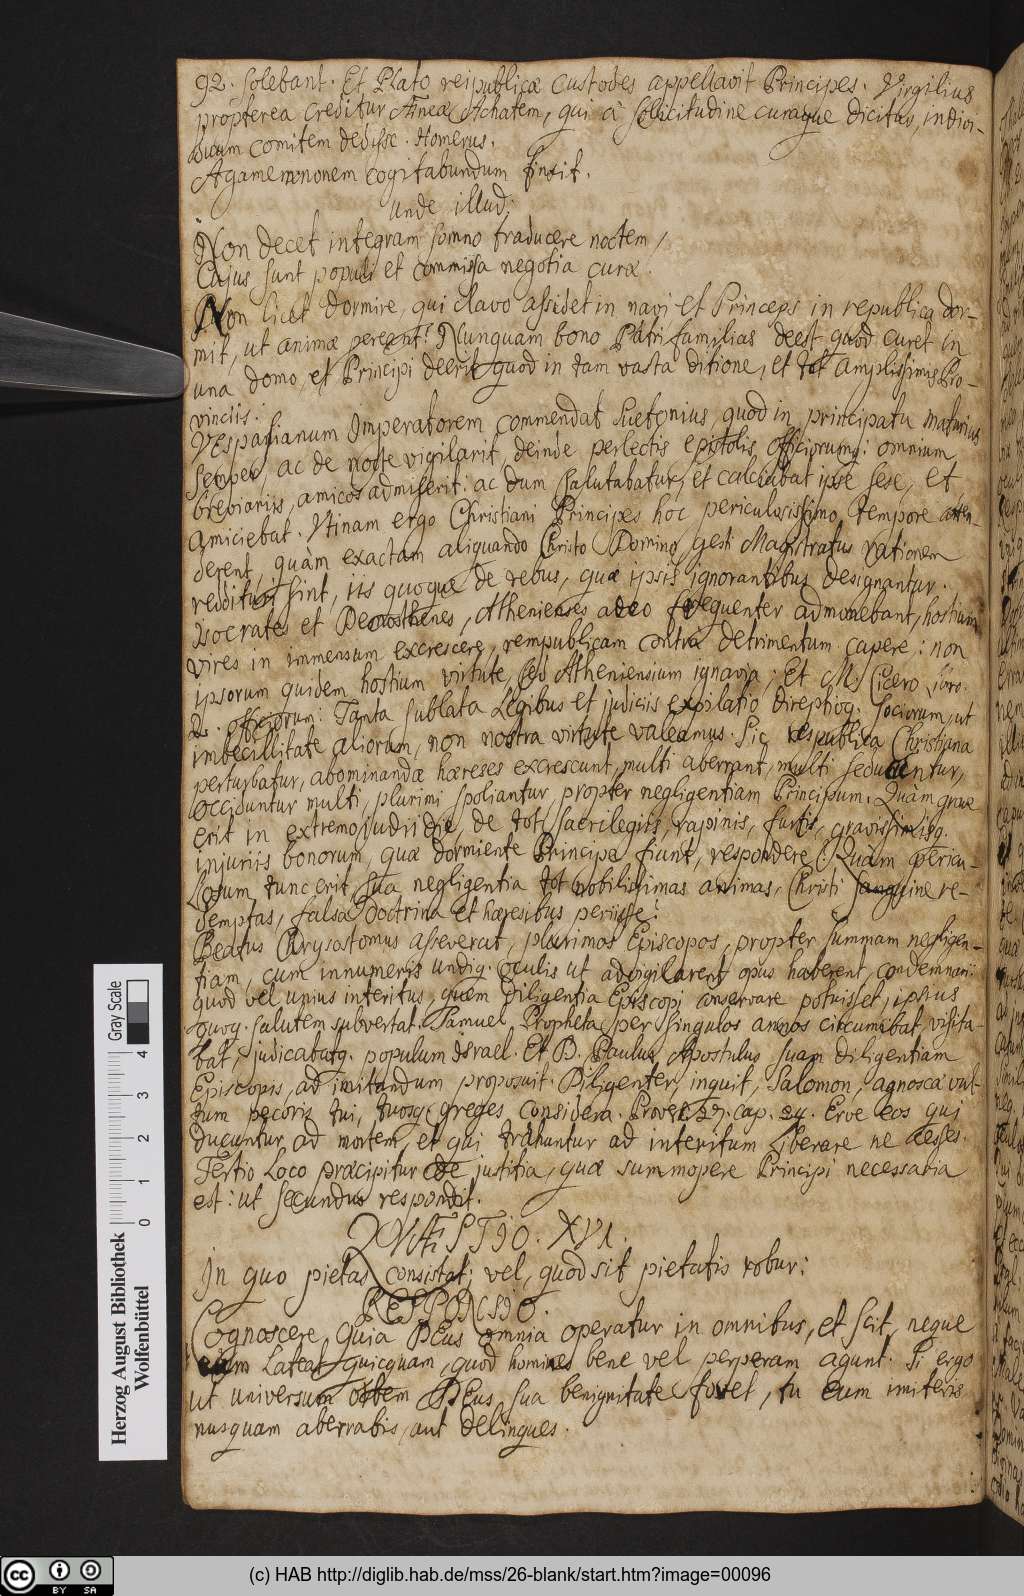 92. solebant. Et Plato reipublicæ custodes appellavit Principes. Virgilius
propterea creditur Æneæ Achatem, qui à sollicitudine curaque dicitur, indivi-
duum comitem dedisse. Homerus.
Agamemnonem cogitabundum finxit.
unde illud:
Non decet integram somno traducere noctem /
Cujus sunt populi et commissa negotia curæ.
Non licet dormire, qui clavo assidet in navi et Princeps in republica dor-
mit, ut animæ pereant? Nunquam bono Patri familias deest quod curet in
una domo, et Principi deerit quod in tam vasta ditione, et tot amplissimis Pro-
vinciis:
Vespasianum Imperatorem commendat Suetonius, quod in principatu maturius
semper, ac de nocte vigilarit, deinde perlectis epistolis, officiorumq: omnium
breviariis, amicos admiserit: ac dum salutabatur, et calciabat ipse sese, et
amiciebat. Vtinam ergo Christiani Principes hoc periculosissimo tempore atten-
derent, quàm exactam aliquando Christo Domino gesti Magistratus rationem
reddituri sint, iis quoque de rebus, quæ ipsis ignorantibus designantur.
Isocrates et Demosthenes, Athenienses adeo frequenter admonebant, hostium
vires in immensum excrescere, rempublicam contra detrimentum capere: non
ipsorum quidem hostium virtute, sed Atheniensium ignavia; Et M. Cicero libro.
2. officiorum: Tanta sublata legibus et judiciis expilatio direptioq. sociorum, ut
imbecillitate aliorum, non nostra virtute valeamus. Sic respublica Christiana
perturbatur, abominandæ hæreses excrescunt, multi aberrant, multi seducuntur,
occiduntur multi, plurimi spoliantur, propter negligentiam Principum. Quàm grave
erit in extremo judicii die, de tot sacrilegiis, rapinis, furtis, gravissimisq.
injuriis bonorum, quæ dormiente Principe fiunt, respondere? Quàm pericu-
losum, tunc erit, sua negligentia tot nobilissimas animas, Christi sanguine re-
demptas, falsa doctrina et hæresibus periisse?
Beatus Chrysostomus asseverat, plurimos Episcopos, propter summam negligen-
tiam, cum innumeris undiq. oculis ut advigilarent opus haberent, condemnari:
quod vel unius interitus, quem diligentia Episcopi conservare potuisset, ipsius
quoq. salutem subvertat. Samuel Propheta per singulos annos circumibat, visita-
bat, judicabatq. populum Israel. Et D. Paulus Apostulus suam diligentiam
Episcopis, ad imitandum proposuit. Diligenter, inquit, Salomon, agnosce vul-
tum pecoris tui, tuosq. greges considera. Prover 27. cap. 24. Erve eos qui
ducuntur ad mortem, et qui trahuntur ad interitum liberare ne cesses.
Tertio loco præcipitur de justitia, quæ summopere Principi necessaria
est: ut secundus respondit.
QVÆSTIO. XVI.
In quo pietas consistat; vel, quod sit pietatis robur:
RESPONSIO.
Cognoscere, Quia DEus omnia operatur in omnibus, et scit, neque
eum lateat quicquam, quod homines bene vel perperam agunt. Si ergo
ut universum orbem DEus sua benignitate fovet, tu eum imiteris
nusquam aberrabis, aut delinques.
Herzog August Bibliothek
Wolfenbüttel
0 1 2 3 4
Gray Scale
cc BY SA
(c) HAB http://diglib.hab.de/mss/26-blank/start.htm?image=00096